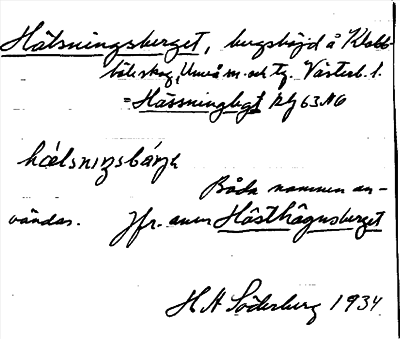 Hälsningsberget, bergshöjd å Klabb-
böle skog, Umeå sn. och tg. Västerb. l.
= Hässningbgt 63 NO
hǽlsnıŋsbárjk
Båda namnen an-
vändas. Jfr. även Hästhägnsberget
H A Söderberg 1934